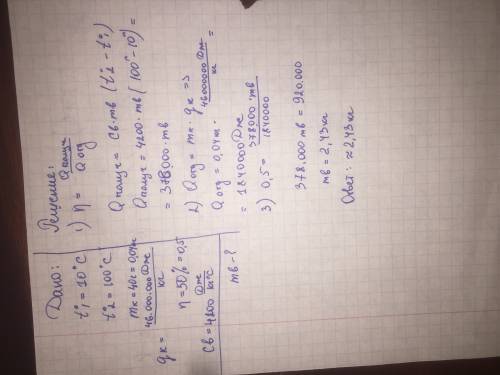 Дано:
t°1 = 10°C
t°2 = 100°C
mк = 40г = 0,04кг
qк = 46.000.000 Дж/кг
η = 50% = 0,5
Cв = 4200 Дж/кг°C
mв - ?
Решение:
1) η = Qполуч/Qотд
Qполуч = Cв·mв (t°2 - t°1)
Qполуч = 4200·mв (100° - 10°) =
= 378000·mв
2) Qотд = mк · qк =>
Qотд = 0,04кг · 46000000 Дж/кг =
= 1840000 Дж
3) 0,5 = 378000·mв/1840000
378.000 mв = 920.000
mв = 2,43 кг
Ответ: ≈ 2,43 кг